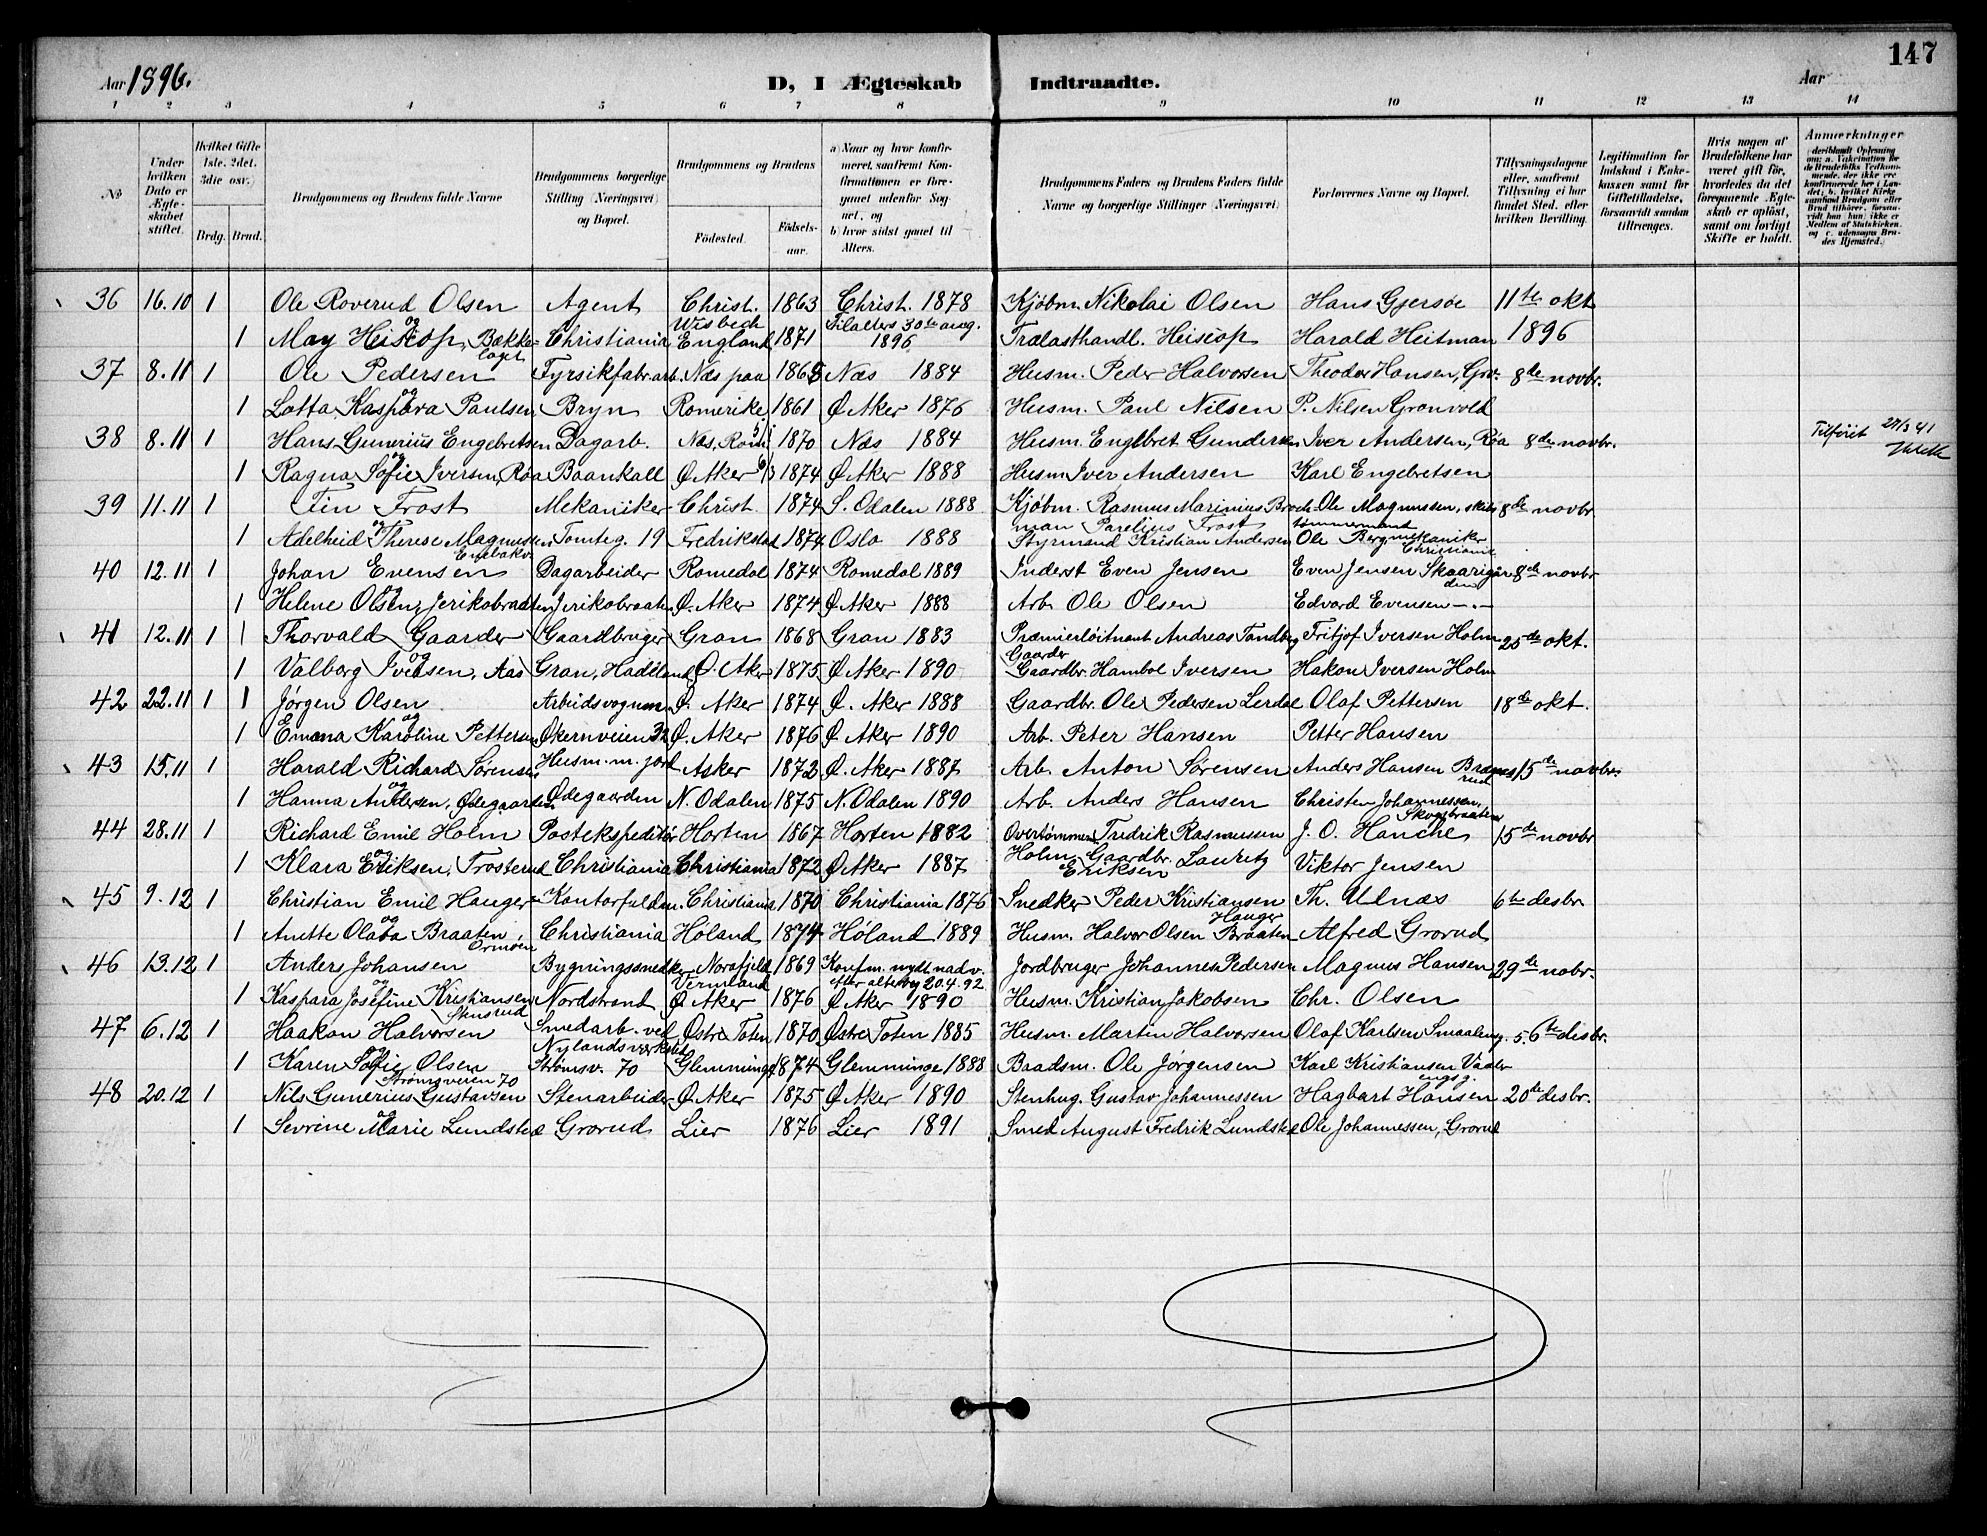 147
Aar 1896. D, I Ægteskab Indtraadte. Aar
1 2 3 4 5 6 7 8 9 10 11 12 13 14
No
Under hvilken Dato er Ægteskabet stiftet.
Hvilket Gifte 1ste. 2det. 3die osv.)
Brdg. Brud.
Brudgommens og Brudens fulde Navne
Brudgommens borgerlige Stilling (Næringsvei) og Bopæl.
Brudgommens og Brudens
Fødested. Fødselsaar.
a) Naar og hvor konfirmeret, saafremt Konfirmationen er foregaaet udenfor Sognet, og b) hvor sidst gaaet til Alters.
Brudgommens Faders og Brudens Faders fulde Navne og borgerlige Stillinger (Næringsvei)
Forlovernes Navne og Bopæl.
Tillysningsdagene eller, saafremt Tillysning ei har fundet Sted, efter hvilken Bevilling.
Legitimation for Indskud i Enkekassen samt for Giftetilladelse, forsaavidt saadan tiltrænges.
Hvis nogen af Brudefolkene har været gift før, hvorledes da det foregaaende Ægteskab er opløst, samt om lovligt Skifte er holdt.
Anmærkninger
36 16.10 1 Ole Roverud Olsen Agent Christ. 1863 Christ. 1878 Kjøbm. Nikolai Olsen Hans Gjersøe 11te okt
og Wisbech Tilalters 30te aug.
1 May Heiscop, Bækkelaget Christiania England 1871 1896 Trælasthandl. Heiscop Harald Heitman 1896
37 8.11 1 Ole Pedersen Fyrsikfabr.arb. Næs paa 1865 Næs 1884 Husm. Peder Halvorsen Theodor Hansen, 8de novbr.
og
1 Lotta Kaspara Paulsen Bryn Romerike 1861 Ø Aker 1876 Husm. Paul Nilsen P. Nilsen Grønvold
38 8.11 1 Hans Gunerius Engebretsen Dagarb. Næs, Rom. 1870 Næs 1884 Husm. Englbret Gundersen Iver Andersen, Røa 8de novbr. Tilføiet 27/3 41
og
1 Ragna Sofie Iversen, Røa Baankall Ø Aker 1874 Ø Aker 1888 Husm Iver Andersen Karl Engebretsen
39 11.11 1 Frost Mekaniker Christ. 1874 S. Odalen 1888 Kjøbm. Rasmus Marinius Brochman Parelius Frost Ole Magnussen, tømmermand 8de novbr
og
1 Adelheid Therese Magnussen Enebakv. Tomteg. 19 Fredrikstad 1874 Oslo 1888 Styrmand Kristian Andersen Ole Berg mekaniker Christiania
40 12.11 1 Johan Evensen Dagarbeider Romedal 1874 Romedal 1889 Inderst Even Jensen Even Jensen 8de novbr
og
1 Helene Olsen, Jerikobraaten Jerikobraaten Ø. Aker 1874 Ø Aker 1888 Arb. Ole Olsen Edvard Evensen —.—
41 12.11 1 1 Thorvald Gaarder Gaardbruger Gran 1868 Gran 1883 Præmierløitnant Andreas Tandberg Gaarder Fritjof Iversen Holm 25de okt.
og
1 Valborg Iversen, Aas Gran, Hadeland Ø. Aker 1875 Ø Aker 1890 Gaardbr. Hambol Iversen Hakon Iversen Holm
42 22.11 1 1 Jørgen Olsen Arbeidsvognm. Ø. Aker 1874 Ø. Aker 1888 Gaardbr. Ole Pedersen Lerdal Olaf Pettersen 18de okt.
og
1 Emma Karoline Pettersen Økernveien 32 Ø. Aker 1876 Ø Aker 1890 Arb. Peter Hansen Petter Hansen
43 15.11 1 Harald Richard Sørensen Husm. m. jord Asker 1872 Ø. Aker 1887 Arb. Anton Sørensen Anders Hansen 15de novbr.
og
1 Hanna Andersen, Ødegaarden Ødegaarden N. Odalen 1875 N. Odalen 1890 Arb. Anders Hansen Christen Johannessen, Skogbraaten
44 28.11 1 Richard Emil Holm Postekspeditør Horten 1867 Horten 1882 Overtømmerm. Fredrik Rasmussen Holm J. O. Hanche 15de novbr
og
1 Klara Eriksen, Trosterud Christiania Christiania 1872 Ø Aker 1887 Gaardbr. Lauritz Eriksen Viktor Jensen
45 9.12 1 Christian Emil Hauger Kontorfuldm. Christiania 1870 Christiania 1876 Snedker Peder Kristiansen Hauger Th. Ulnæs 6te desbr
og
1 Anette Olava Braaten, Ormøen Christiania Høland 1874 Høland 1889 Husm. Halvor Olsen Braaten Alfred Grorud
46 13.12 1 Anders Johansen Bygningssnedker Norafjeld Vermland 1869 Konfm. nydt nadv. efter altbog 20.4.92 Jordbruger Johannes Pedersen Magnus Hansen 29de nobr.
og
1 Kaspara Josefine Kristiansen Stensrud Nordstrand Ø Aker 1876 Ø Aker 1890 Husm. Kristian Jakobsen Chr. Olsen
47 6.12 1 Haakon Halvorsen Smedarb. ved Nylandsværksted Østre Toten 1870 Østre Toten 1885 Husm. Martin Halvorsen Olaf Karlsen Smaaleng. 5. 6te desbr.
og
1 Karen Sofie Olsen Strømsveien 70 Strømsv. 70 Glemminge 1874 Glemminge 1888 Baadsm. Ole Jørgensen Karl Kristiansen
48 20.12 1 Nils Gunerius Gustavsen Stenarbeider Ø Aker 1875 Ø Aker 1890 Stenhug. Gustav Johannessen Hagbart Hansen 20de desbr.
og
1 Sevrine Marie Lundsted Grorud Lier 1876 Lier 1891 Smed August Fredrik Lundsted Ole Johannessen, Grorud